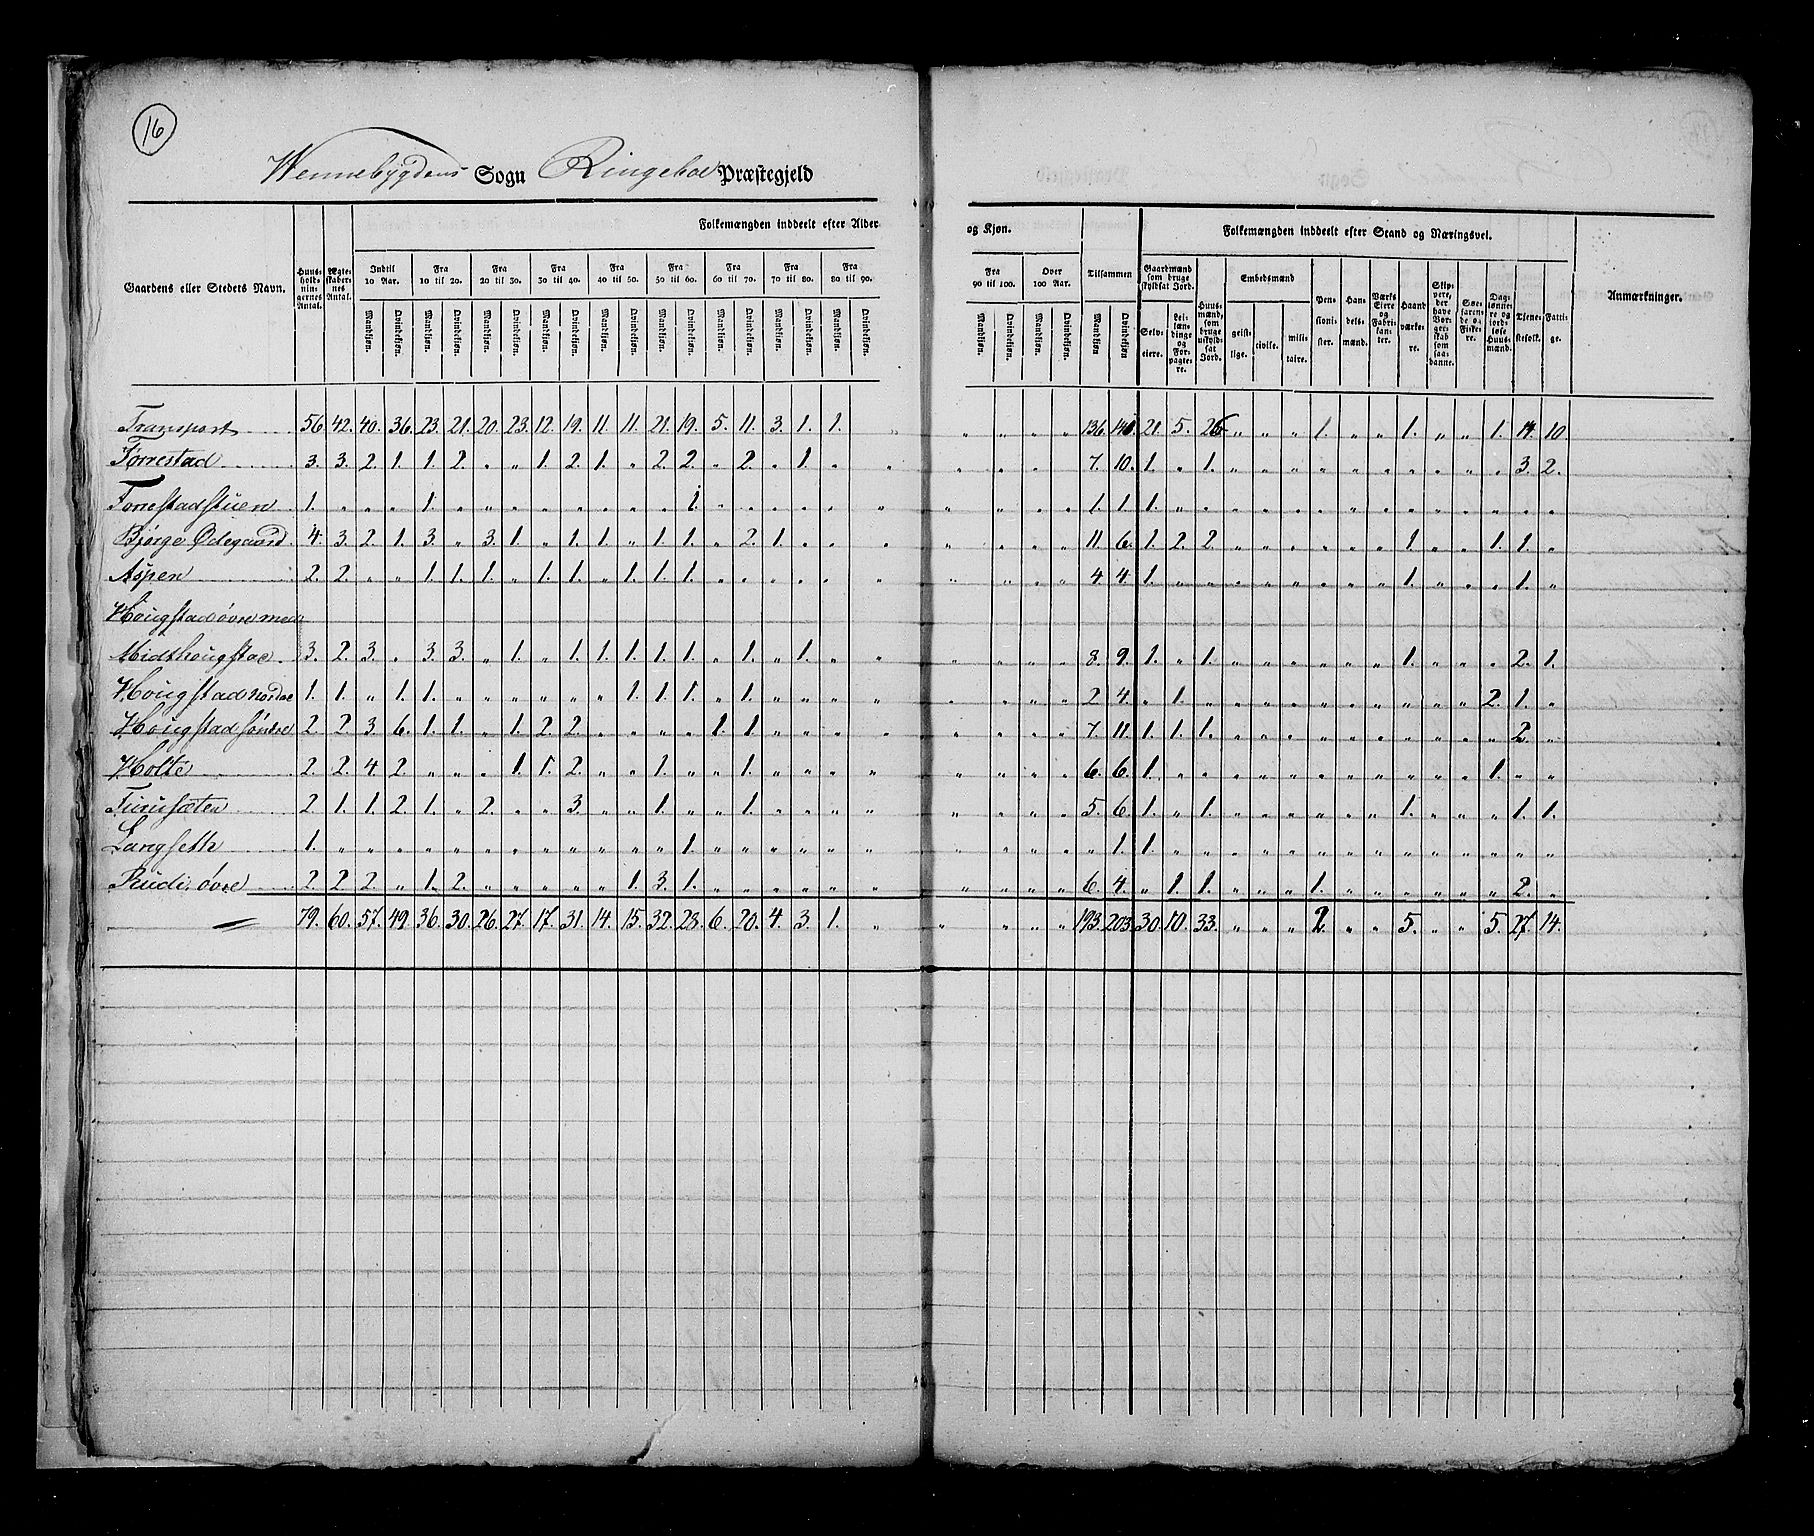 16
Wennebygdens Sogn Ringeboe Præstegjeld
Gaardens eller Steders Navn. Huusholdningernes Antal. Ægteskabernes Antal. Folkemængden inddeelt efter Alder og Kjøn. Tilsammen Folkemængden inddeelt efter Stand og Næringsvei. Anmærkninger.
Indtil 10 Aar. Fra 10 til 20. Fra 20 til 30. Fra 30 til 40. Fra 40 til 50. Fra 50 til 60. Fra 60 til 70. Fra 70 til 80. Fra 80 til 90. Fra 90 til 100. Over 100 Aar. Gaardmænd som bruge skyldsat Jord. Huusmænd, som bruge uskyldsat Jord. Embedsmænd Pensionister. Handelsmænd. Værks Eiere og Fabrikanter. Haandværkere. Skippere, der have Borgerskab som saadanne. Søefarende og Fiskere. Daglønnere og jordløse Huusmænd. Tjenestefolk. Fattige.
Mandkiøn. Qvindekiøn. Mandkiøn. Qvindekiøn. Mandkiøn. Qvindekiøn. Mandkiøn. Qvindekiøn. Mandkiøn. Qvindekiøn. Mandkiøn. Qvindekiøn. Mandkiøn. Qvindekiøn. Mandkiøn. Qvindekiøn. Mandkiøn. Qvindekiøn. Mandkiøn. Qvindekiøn. Mandkiøn. Qvindekiøn. Mandkiøn Qvindekiøn Selveiere. Leilændinge og Forpagtere. geistlige. civile. militaire.
Transport 56. 42. 40. 36. 23. 21. 20. 23. 12. 19. 11. 11. 21. 19. 5. 11. 3. 1. 1. " " " " " 136. 140. 21. 5. 26. " " " 1. " " 1. " " 1. 14. 10.
Torrestad 3. 3. 2. 1. 1. 2. " " 1. 2. 1. " 2. 2. " 2. " 1. " " " " " " 7. 10. 1. " 1. " " " " " " " " " " 3. 2.
Torrestadstuen 1. " " " 1. " " " " " " " " 1. " " " " " " " " " " 1. 1. 1. " " " " " " " " " " " " " "
Bjørge Ødegaard. 4. 3. 2. 1. 3. " 3. 1. " 1. 1. " 1. 1. " 2. 1. " " " " " " " 11. 6. 1. 2. 2. " " " " " " 1. " " 1. 1. "
Aspen 2. 2. " " 1. 1. 1. " 1. 1. " 1. 1. 1. " " " " " " " " " " 4. 4. 1. " " " " " " " " 1. " " " 1. "
Hougstad øvre med
Midthougstad 3. 2. 3. " 3. 3. " 1. " 1. 1. 1. 1. 1. " 1. " 1. " " " " " " 8. 9. 1. " 1. " " " " " " 1. " " " 2. 1.
Hougstad nordre 1. 1. " 1. 1. " " " " " " 1. 1. 1. " 1. " " " " " " " " 2. 4. " 1. " " " " " " " " " " 2. 1. "
Hougstad søndre 2. 2. 3. 6. 1. 1. " 1. 2. 2. " " " " 1. 1. " " " " " " " " 7. 11. 1. 1. 1. " " " " " " " " " " 2. "
Holte 2. 2. 4. 2. " " " 1. 1. 2. " " 1. " " 1. " " " " " " " " 6. 6. 1. " " " " " " " " " " " 1. " "
Furusæten 2. 1. 1. 2. 1. " 2. " " 3. " " 1. " " 1. " " " " " " " " 5. 6. 1. " 1. " " " " " " 1. " " " 1. 1.
Langseth 1. " " " " " " " " " " " " 1. " " " " " " " " " " " 1. 1. " " " " " " " " " " " " " "
Rudi, øvre 2. 2. 2. " 1. 2. " " " " " 1. 3. 1. " " " " " " " " " " 6. 4. " 1. 1. " " " 1. " " " " " " 2. "
79. 60. 57. 49. 36. 30. 26. 27. 17. 31. 14. 15. 32. 28. 6. 20. 4. 3. 1. " " " " " 193. 203. 30. 10. 33. " " " 2. " " 5. " " 5. 27. 14.